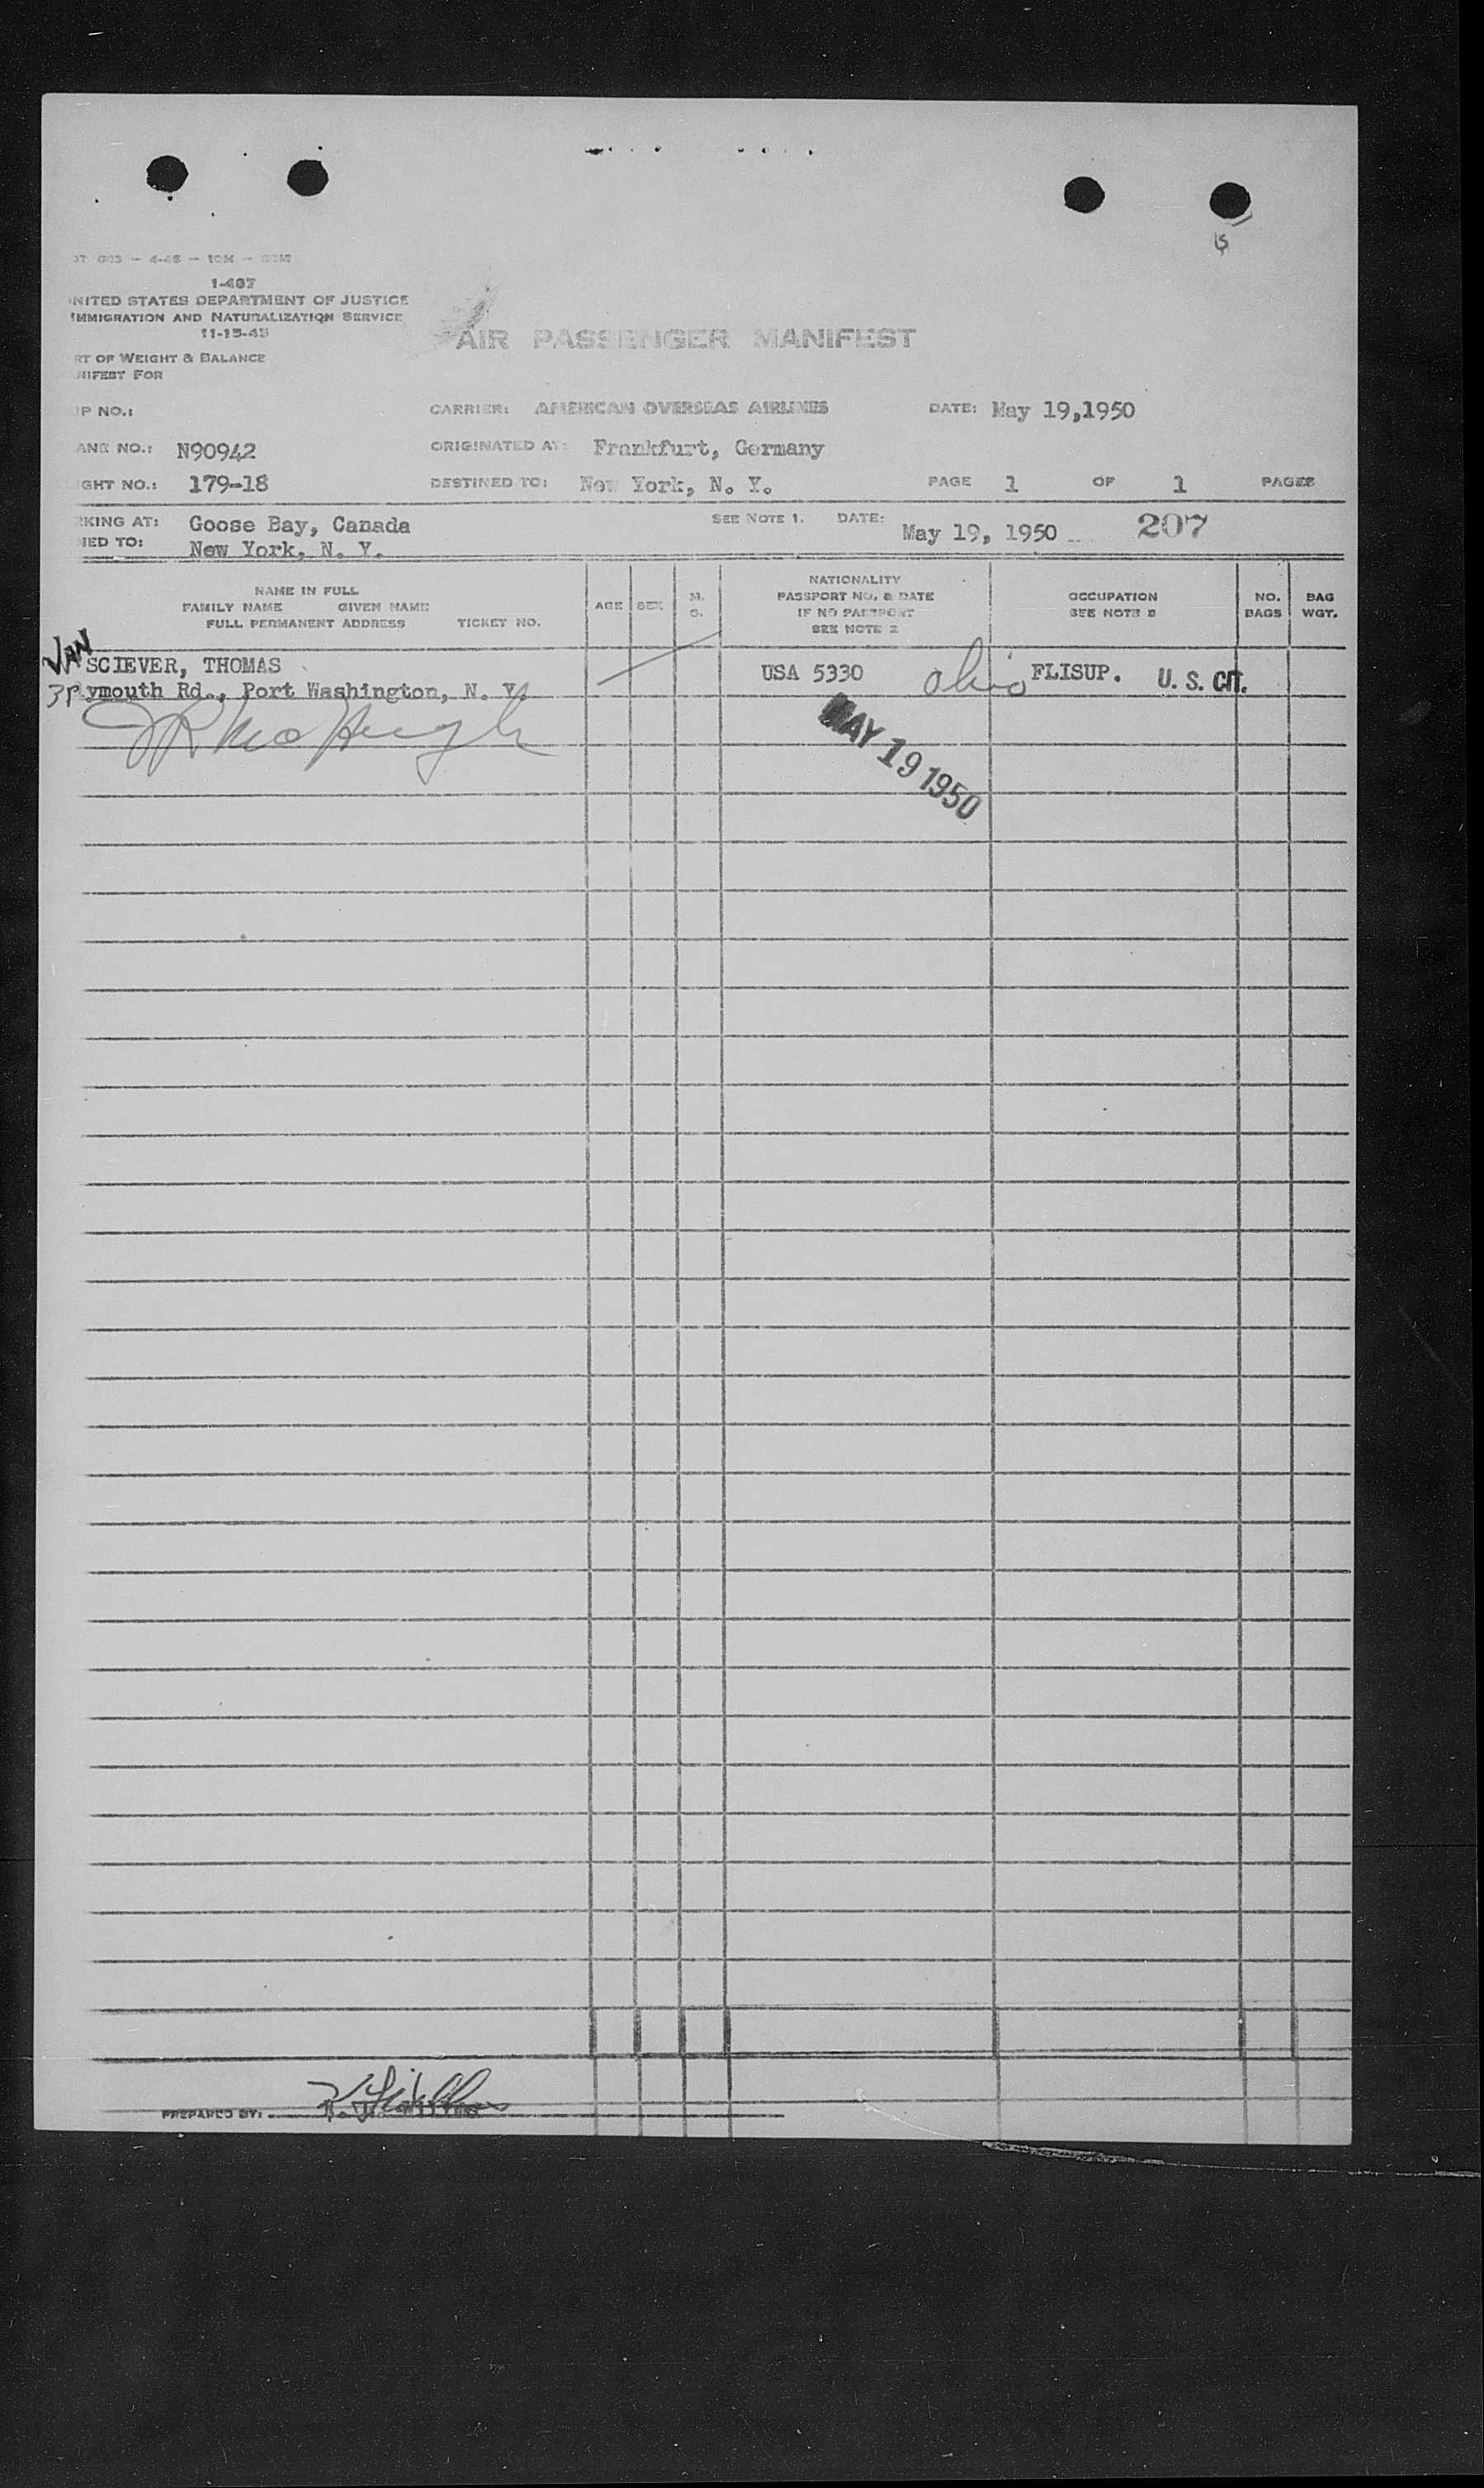 1-467
NITED STATES DEPARTMENT OF JUSTICE
IMMIGRATION AND NATURALIZATION SERVICE
11-15-45
AIR PASSENGER MANIFEST
RT OF WEIGHT & BALANCE
NIFEST FOR
IP NO.:
CARRIER: AMERICAN OVERSEAS AIRLINES DATE: May 19,1950
ANE NO.: N90942 ORIGINATED AT: Frankfurt, Germany
GHT NO.: 179-18 DESTINED TO: New York, N. Y. PAGE 1 OF 1 PAGES
RKING AT: Goose Bay, Canada SEE NOTE 1. DATE: May 19, 1950 207
NED TO: New York, N. Y.
NAME IN FULL
FAMILY NAME GIVEN NAME
FULL PERMANENT ADDRESS TICKET NO.
AGE SEX
M.
S.
NATIONALITY
PASSPORT NO. & DATE
IF NO PASSPORT
SEE NOTE 2
OCCUPATION
SEE NOTE
NO.
BAGS
BAG
WGT.
VAN SCIEVER, THOMAS USA 5330 Ohio FLISUP. U. S. CIT.
3 Plymouth Rd., Port Washington, N. Y.
MAY 19 1950
PREPARED BY: